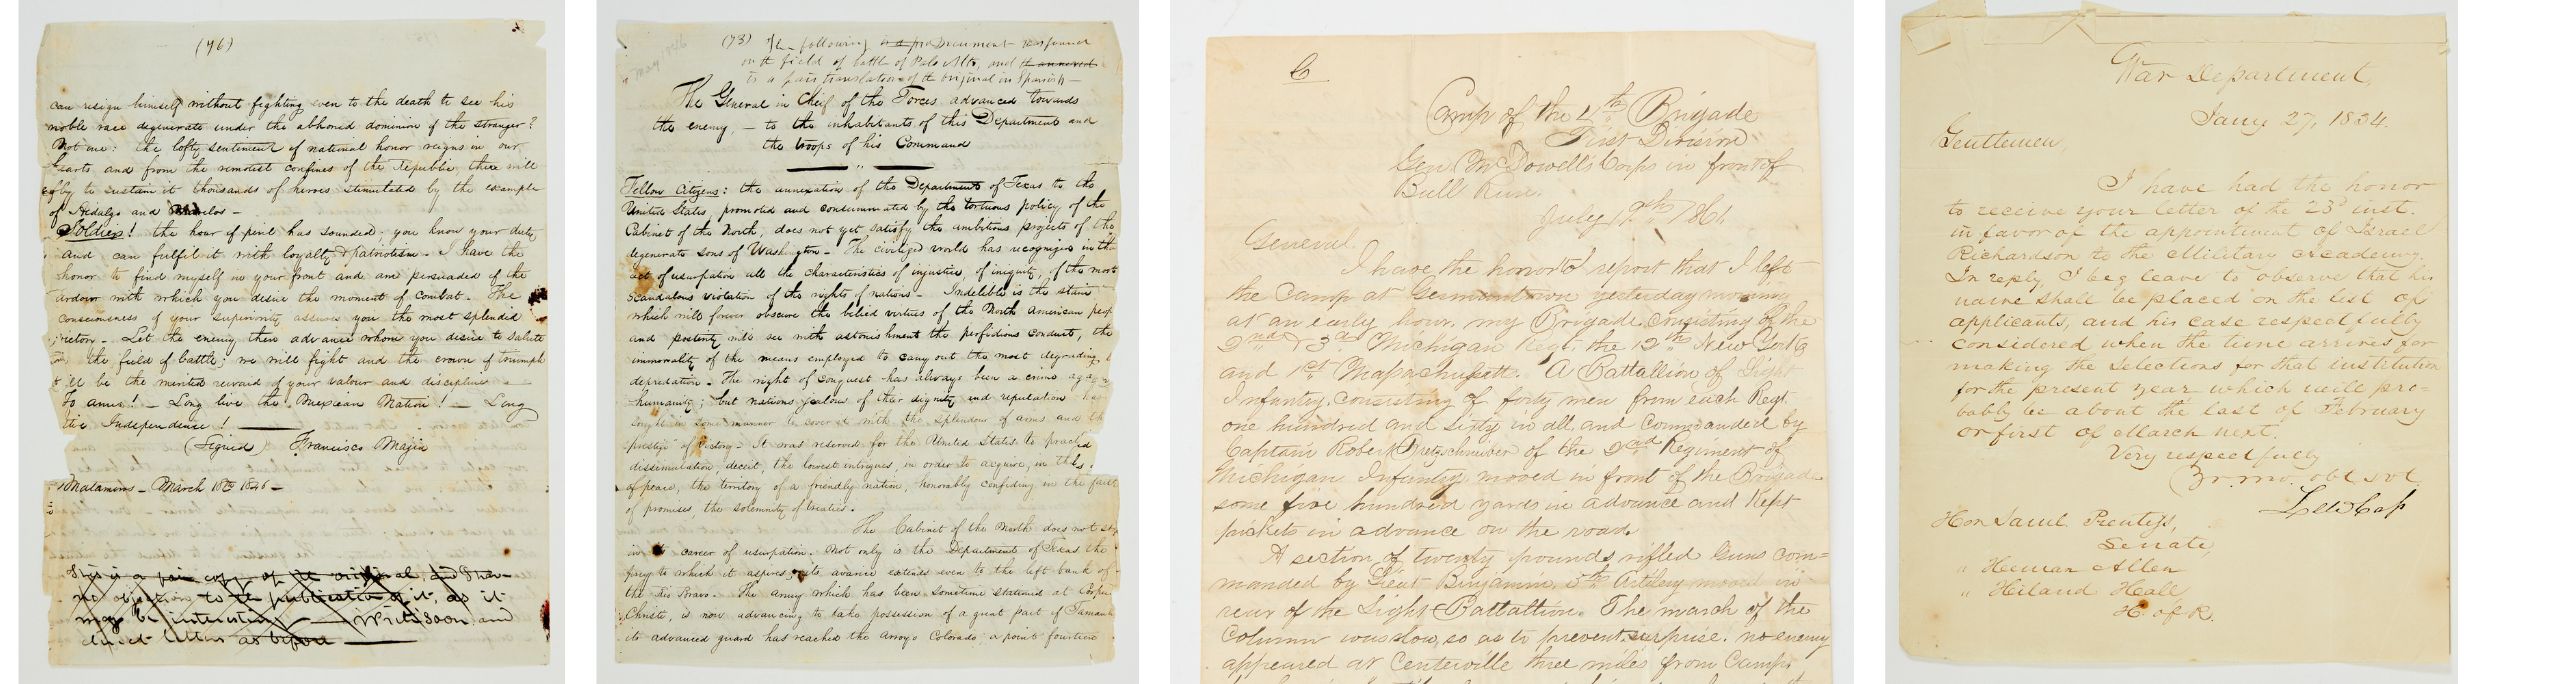 (76)
can resign himself without fighting even to the death to see his
noble race degenerate under the abhored dominion of the stranger?
Not one: the lofty sentiment of national honor reigns in our
hearts, and from the remotest confines of the Republic, there will
by to sustain it thousands of heroes stimulated by the example
of Hidalgo and Morelos -
Soldiers! the hour of peril has sounded: you know your duty
and can fulfil it with loyalty & patriotism. I have the
honor to find myself in your front and am persuaded of the
ardour with which you desire the moment of combat. The
consciousness of your superiority assures you the most splendid
victory - Let the enemy then advance whom you desire to salute
the field of battle; we will fight and the crown of triumph
will be the merited reward of your valour and discipline -
To arms! - Long live the Mexican Nation! - Long
live Independence!
(Signed) Francisco Mejia
Matamoros - March 18th 1846 -
This is a fair copy of the original, and I have
no objections to the publication of it, as it
may be interesting - Write soon and
direct letters as before
May 1846
(73) The following document found
on the field of battle of Palo Alto, and annexed
is a fair translation of the original in Spanish -
The General in Cheif of the Forces advanced towards
the enemy, - to the inhabitants of this Department and
the troops of his Command
Fellow Citizens: the annexation of the Department of Texas to the
United States, promoted and consummated by the tortuous policy of the
Cabinet of the North, does not yet satisfy the ambitious projects of the
degenerate sons of Washington - The civilized world has recognized in the
act of usurpation all the characteristics of injustice, of iniquity, of the most
scandalous violation of the rights of nations - Indelible is the stain
which will forever obscure the belied virtues of the North American peop
and posterity will see with astonishment the perfidious conduct, the
immorality of the means employed to carry out the most degrading
depredation - The right of conquest has always been a crime against
humanity; but nations jealous of their dignity and reputation have
sought in some manner to cover it with the splendour of arms and the
prestige of victory - It was reserved for the United States to practice
dissimulation, deceit, the lowest intrigues, in order to acquire, in the
of peace, the territory of a friendly nation, honorably confiding in the faith
of promises, the solemnity of treaties.
The Cabinet of the North does not stop
in career of usurpation. Not only is the Department of Texas the
prey to which it aspires, its avarice extends even to the left bank of
the Rio Bravo. The army which has been sometime stationed at Corpus
Christi, is now advancing to take possession of a great part of Tamau
its advanced guard has reached the Arroyo Colorado a point fourteen
Camp of the 4th Brigade
First Division
Genl McDowell's Corps in front of
Bull Run.
July 19th 1861
General
I have the honor to report that I left
the Camp at Germantown yesterday morning
at an early hour. my Brigade, consisting of the
2nd & 3rd Michigan Regt. the 12th New York
and 1st Massachusett. A Battallion of Light
Infantry, consisting of forty men from each Regt.
one hundred and sixty in all, and commanded by
Captain Robert Bretschnieber of the 2nd Regiment of
Michigan Infantry moved in front of the Brigade
some five hundred yards in advance and kept
pickets in advance on the road.
A section of twenty pounds rifled Guns com=
manded by Lieut Benjamin 5th Artillery moved in
rear of the Light Battallion. The march of the
Column was slow, so as to prevent surprise. no enemy
appeared at Centerville three miles from Camp
War Department,
Jany 27, 1834.
Gentlemen,
I have had the honor
to receive your letter of the 23d inst.
in favor of the appointment of Israel
Richardson to the Military Academy.
In reply, I beg leave to observe that his
name shall be placed on the list of
applicants, and his case respectfully
considered when the time arrives for
making the selections for that institution
for the present year which will pro-
bably be about the last of February
or first of March next.
Very respectfully
Yr. mo. obt svt.
Lew Cass
Hon Saml. Prentiss,
Senate
" Heman Allen
" Hiland Hall
H. of R.